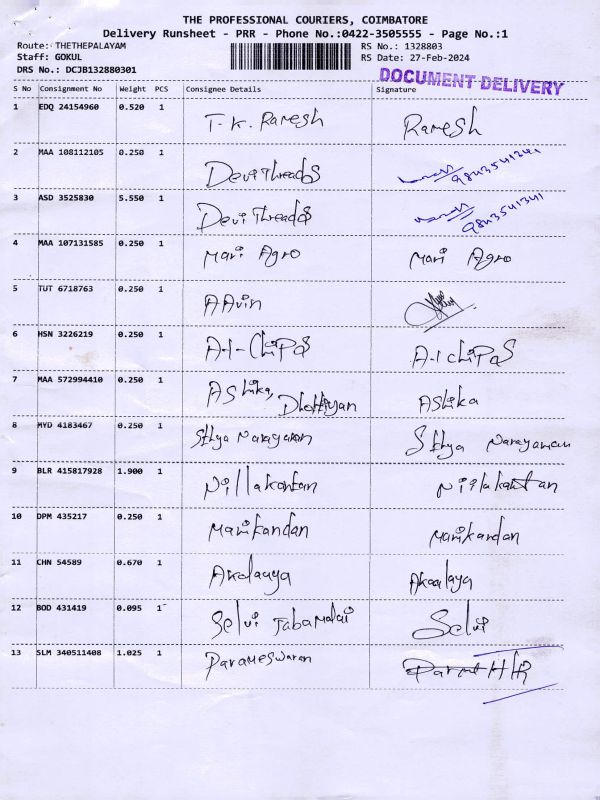 THE PROFESSIONAL COURIERS, COIMBATORE
Delivery Runsheet - PRR - Phone No.:0422-3505555 - Page No.:1
Route: THETHEPALAYAM RS No.: 1328803
Staff: GOKUL RS Date: 27-Feb-2024
DRS No.: DCJB132880301
DOCUMENT DELIVERY
S No Consignment No Weight PCS Consignee Details Signature
1 EDQ 24154960 0.520 1 T.K. Ramesh Ramesh
2 MAA 108112105 0.250 1 Devi Threads 9843541341
3 ASD 3525830 5.550 1 Devi Threads 9843541341
4 MAA 107131585 0.250 1 Mari Agro Mari Agro
5 TUT 6718763 0.250 1 AAvin
6 HSN 3226219 0.250 1 A-1-Chips A-1 chips
7 MAA 572994410 0.250 1 Ashika, Dhottiyan Ashika
8 MYD 4183467 0.250 1 Sthya Narayanan Sthya Narayanan
9 BLR 415817928 1.900 1 Nillakantan Nillakantan
10 DPM 435217 0.250 1 Manikandan Manikandan
11 CHN 54589 0.670 1 Akalaya Akaalaya
12 BOD 431419 0.095 1 Selvi Jabamalai Selvi
13 SLM 340511408 1.025 1 Parameswaran